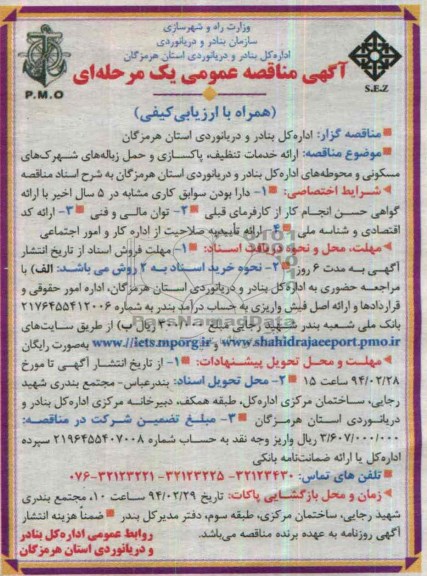 وزارت راه و شهرسازی
سازمان بنادر و دریانوردی
اداره‌کل بنادر و دریانوردی استان هرمزگان
آگهی مناقصه عمومی یک مرحله‌ای
P.M.O
S.E.Z
(همراه با ارزیابی‌کیفی)
مناقصه گزار: اداره‌کل بنادر و دریانوردی استان هرمزگان
موضوع مناقصه: ارائه خدمات تنظیف، پاکسازی و حمل زباله‌های شهرک‌های
مسکونی و محوطه‌های اداره‌کل بنادر و دریانوردی استان هرمزگان به شرح اسناد مناقصه
شرایط اختصاصی: ۱- دارا بودن سوابق کاری مشابه در ۵ سال اخیر با ارائه
گواهی حسن انجام کار از کارفرمای قبلی ۲- توان مالی و فنی ۳- ارائه کد
اقتصادی و شناسه ملی ۴- ارائه تأییدیه صلاحیت از اداره کار و امور اجتماعی
مهلت، محل و نحوه دریافت اسناد: ۱- مهلت فروش اسناد از تاریخ انتشار
آگهی به مدت ۶ روز ۲- نحوه خرید اسناد به ۲ روش می باشد: الف) با
مراجعه حضوری به اداره‌کل بنادر و دریانوردی استان هرمزگان، اداره امور حقوقی و
قراردادها و ارائه اصل فیش واریزی به حساب درآمد بندر به شماره ۲۱۷۶۴۵۵۴۱۲۰۰۶
بانک ملی شعبه بندر شهید رجایی مبلغ ریال ب) از طریق سایت‌های
www.shahidrajaeeport.pmo.ir و http://iets.mporg.ir به‌صورت رایگان
مهلت و محل تحویل پیشنهادات: ۱- از تاریخ انتشار آگهی تا مورخ
۹۴/۰۲/۲۸ ساعت ۱۵ ۲- محل تحویل اسناد: بندرعباس- مجتمع بندری شهید
رجایی، ساختمان مرکزی اداره‌کل، طبقه همکف، دبیرخانه مرکزی اداره‌کل بنادر و
دریانوردی استان هرمزگان ۳- مبلغ تضمین شرکت در مناقصه:
۳/۶۰۷/۰۰۰/۰۰۰ ریال واریز وجه نقد به حساب شماره ۲۱۹۶۴۵۵۴۰۷۰۰۸ سپرده
اداره‌کل یا ارائه ضمانت‌نامه بانکی
تلفن های تماس: ۳۲۱۲۳۴۳۰- ۳۲۱۲۳۲۲۵- ۳۲۱۲۳۲۲۱-۰۷۶
زمان و محل بازگشایی پاکات: تاریخ ۹۴/۰۲/۲۹ ساعت ۱۰، مجتمع بندری
شهید رجایی، ساختمان مرکزی، طبقه سوم، دفتر مدیرکل بندر ضمناً هزینه انتشار
آگهی روزنامه به عهده برنده مناقصه می‌باشد.
روابط عمومی اداره‌کل بنادر
و دریانوردی استان هرمزگان